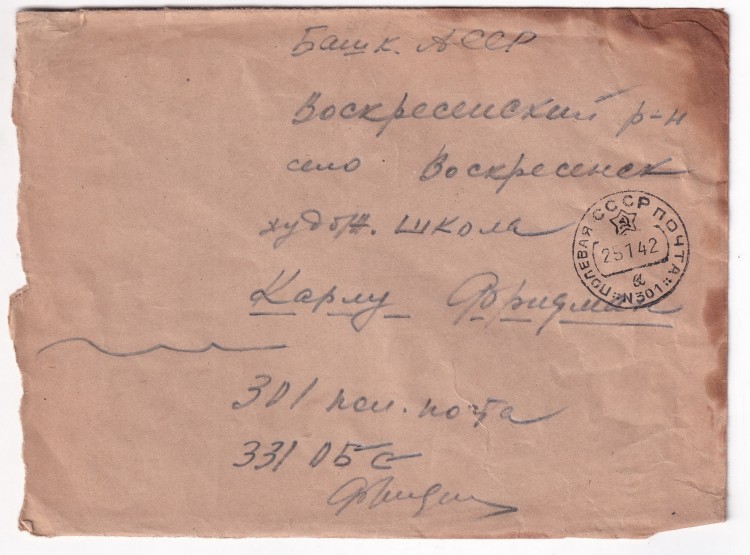 Башк. АССР
Воскресенский р-н
село Воскресенск
худож. школа
Карлу Фридман
ПОЛЕВАЯ СССР ПОЧТА
25 1 42
а
N301
301 пол. почта
331 ОБС